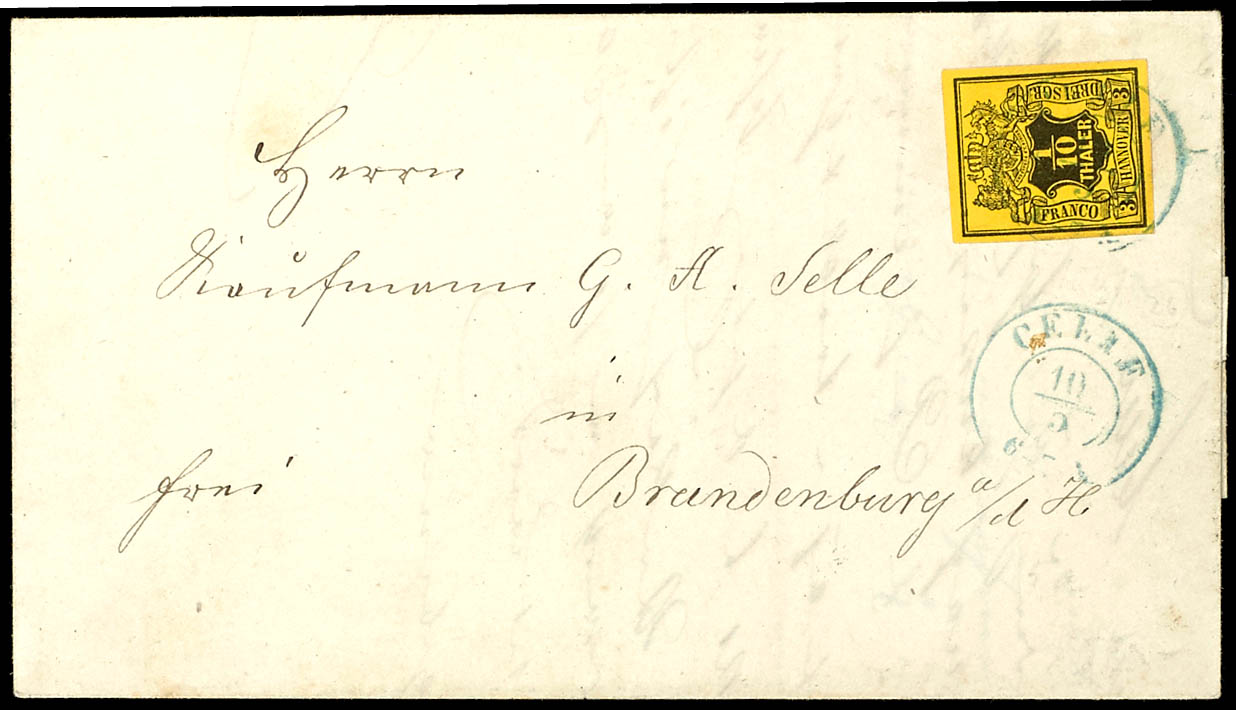 Herrn
Kaufmann G. A. Selle
in
frei
Brandenburg a/d H
DREI SGR.
1/10
THALER
FRANCO
3 HANNOVER 3
CELLE
10
5